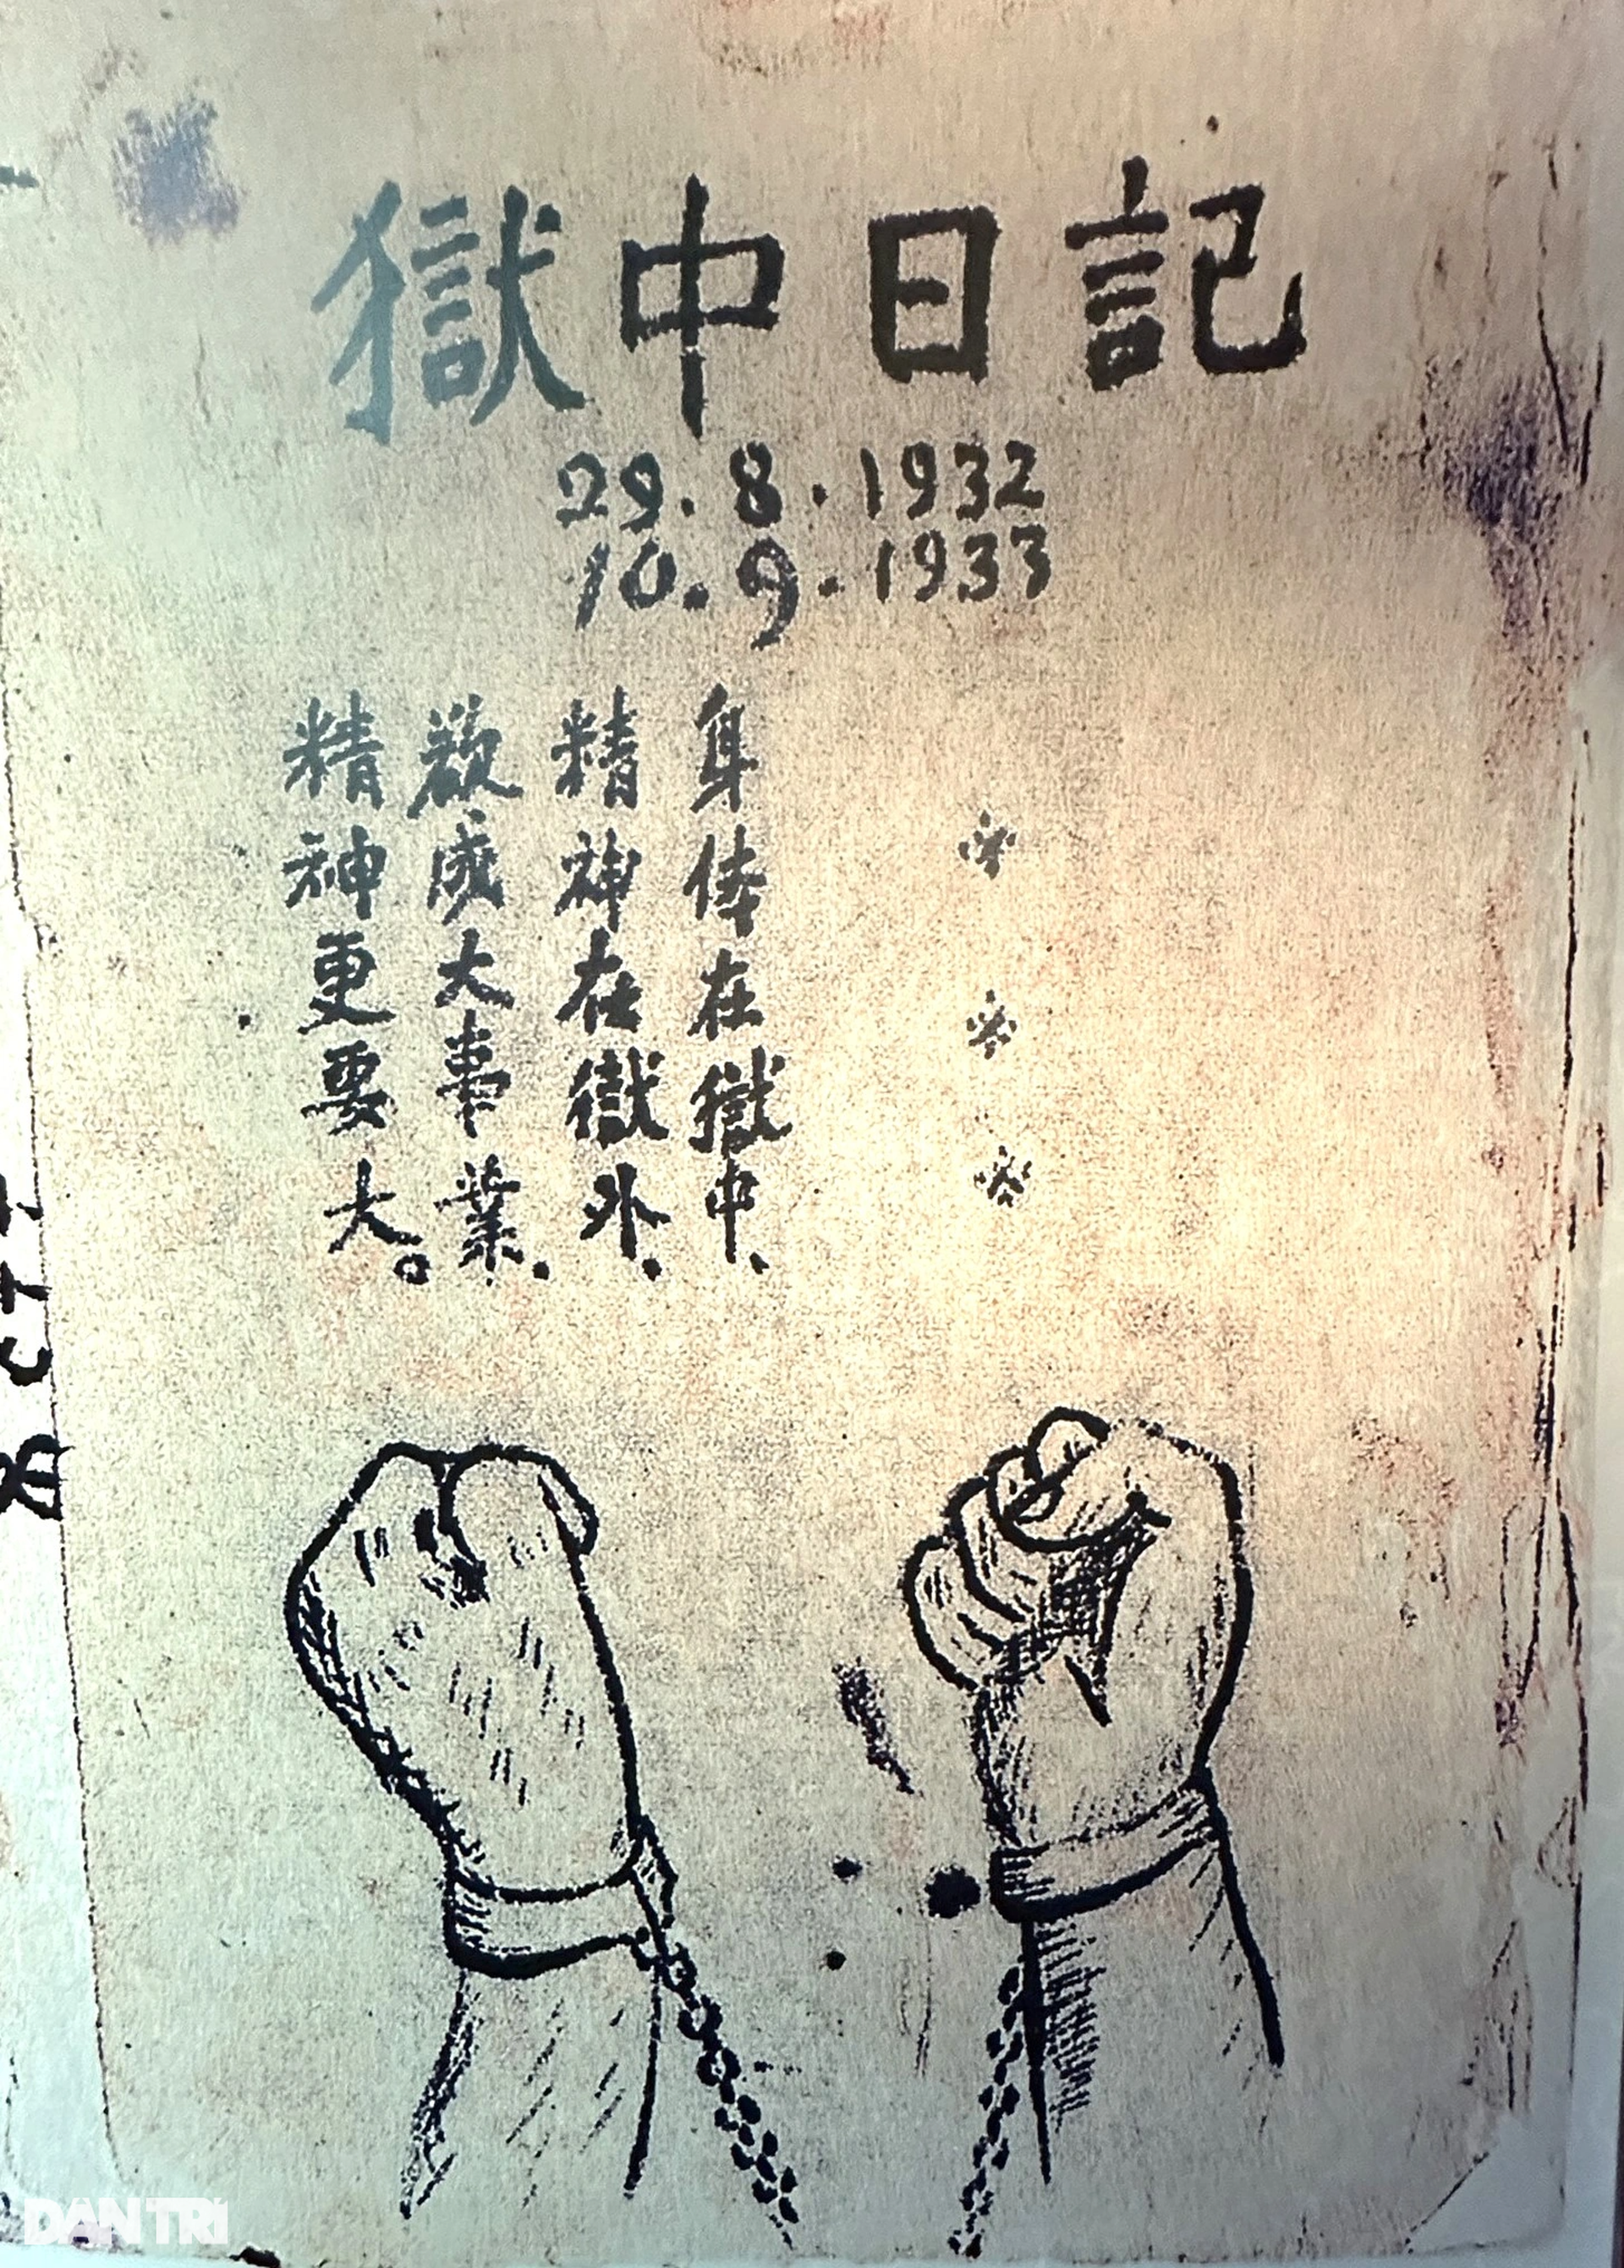 獄中日記
29.8.1932
10.9.1933
身体在獄中、
精神在獄外.
欲成大事業.
精神更要大。
DANTRI